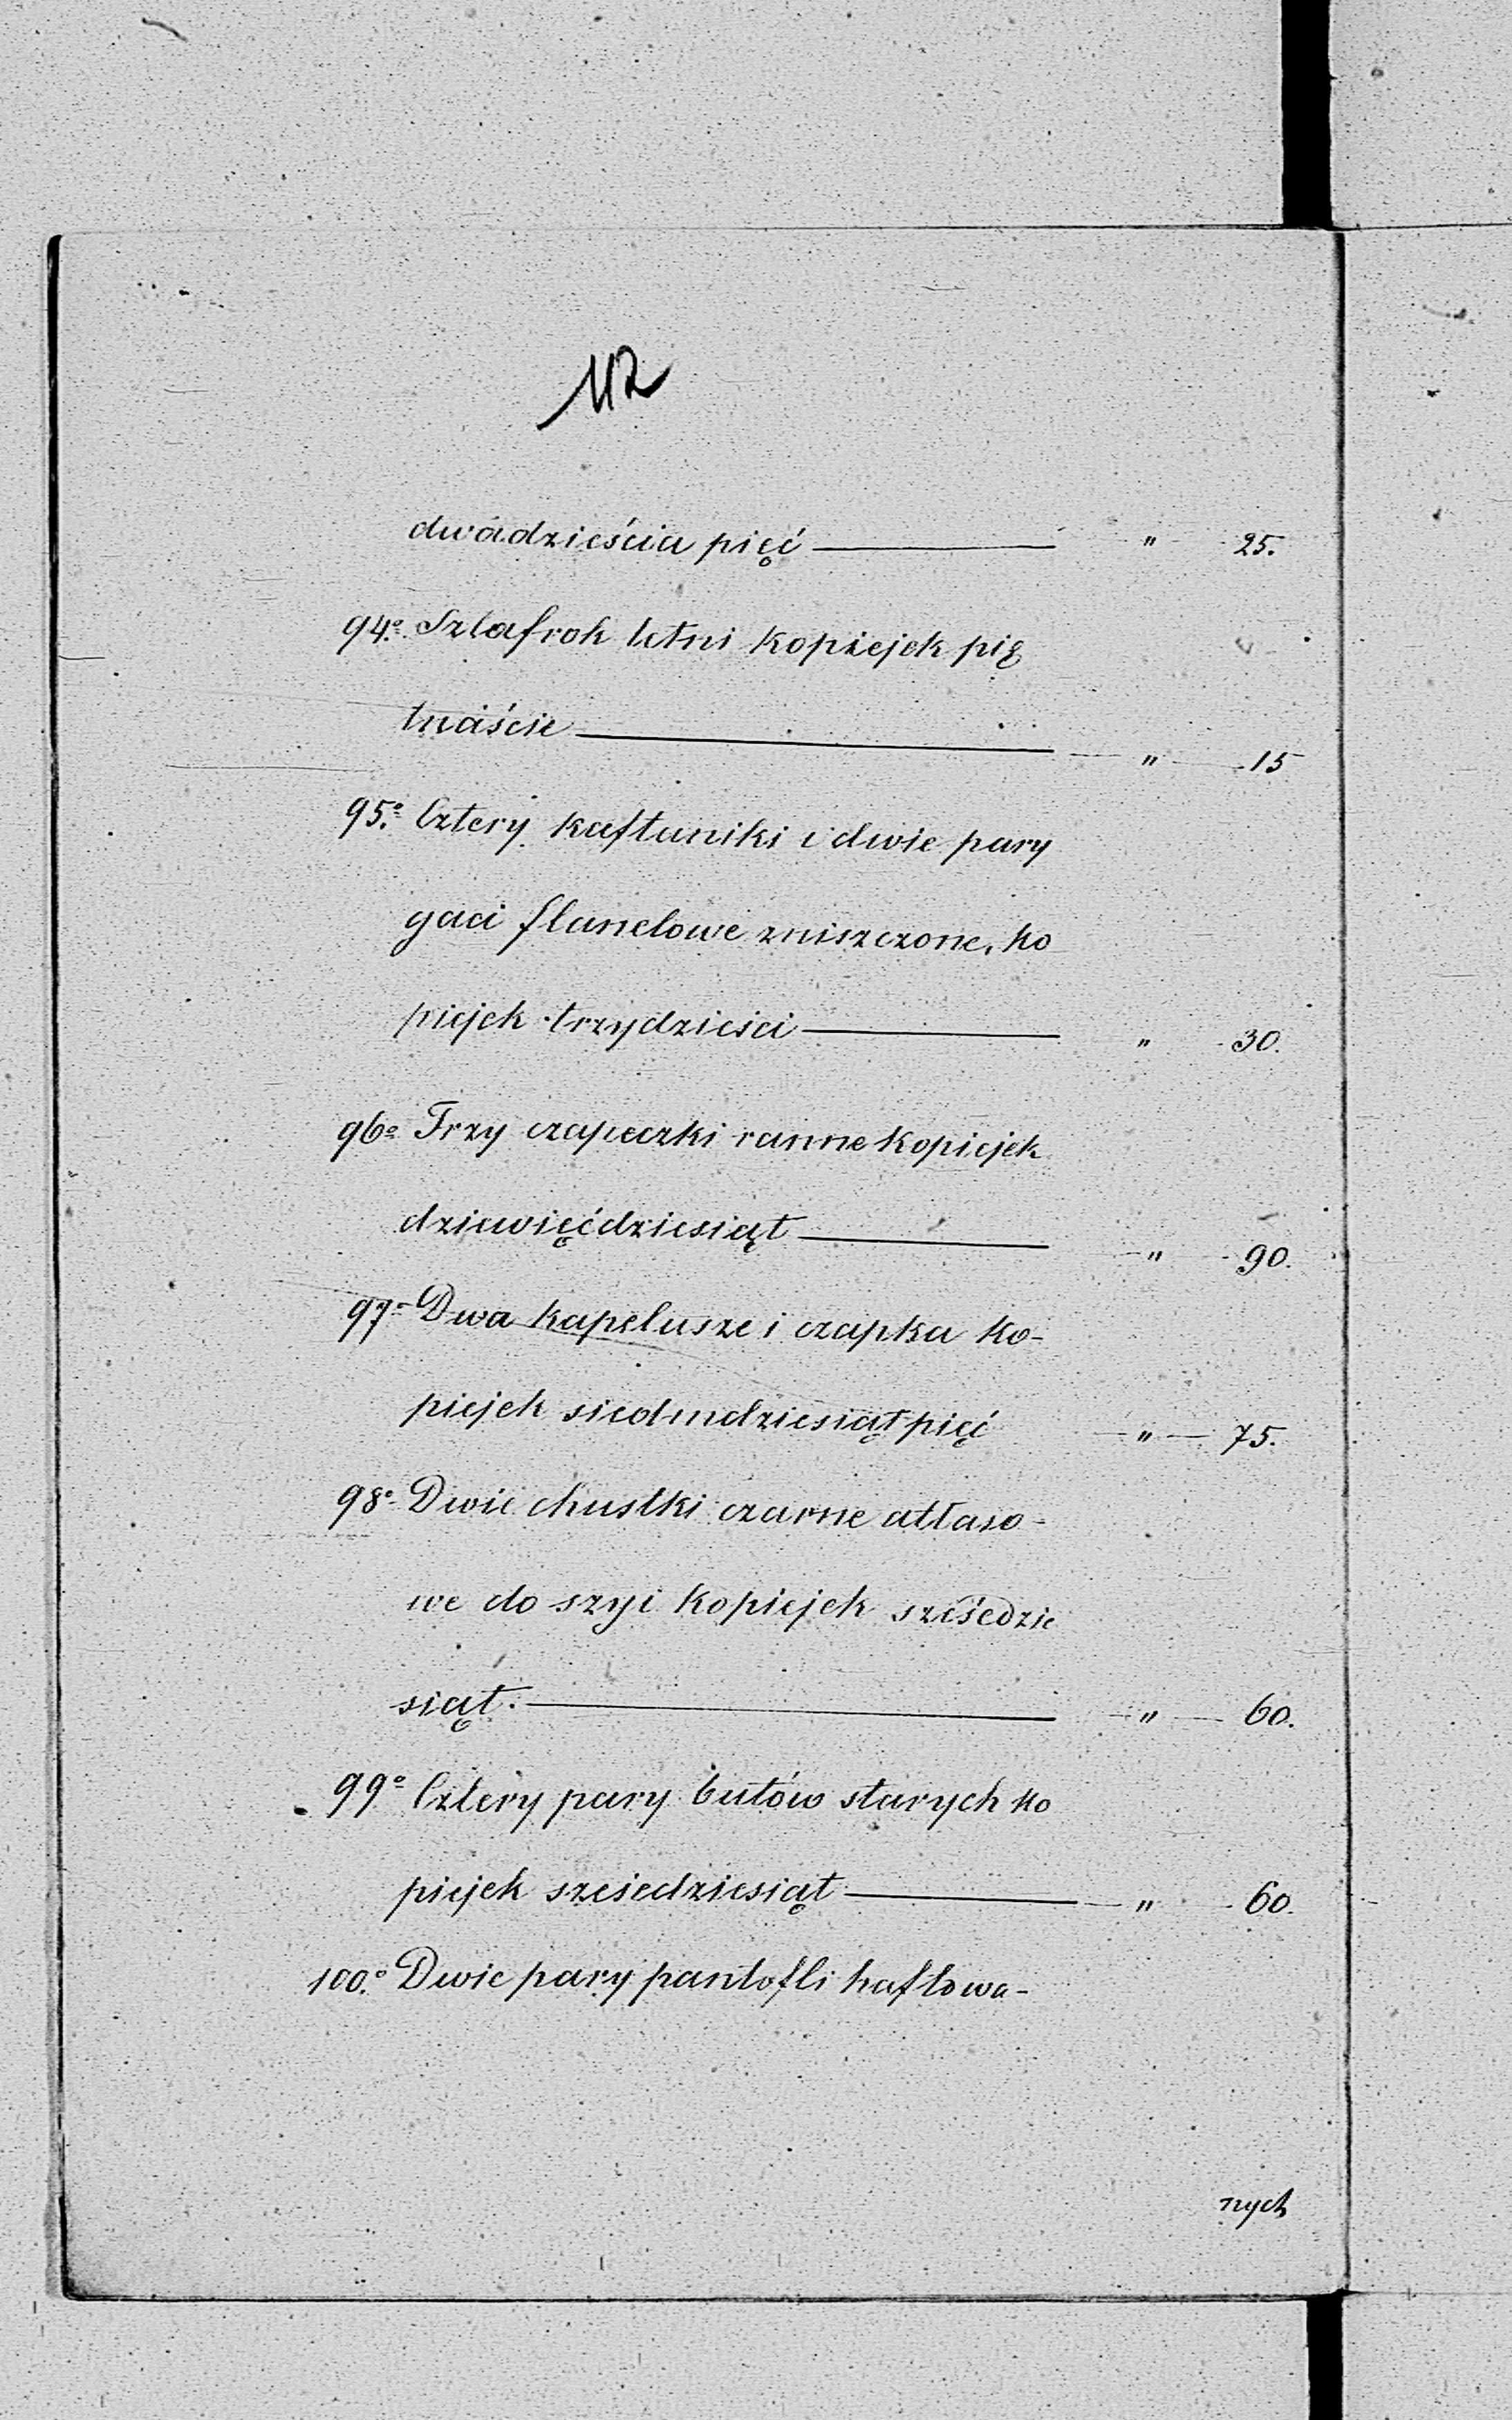 112
dwadzieścia pięć — " 25.
94.º Szlafrok letni kopiejek pię
tnaście — " 15
95.º Cztery kaftaniki i dwie pary
gaci flanelowe zniszczone, ko
piejek trzydzieści — " 30.
96º Trzy czapeczki ranne kopiejek
dziewięćdziesiąt — " 90.
97º Dwa kapelusze i czapka ko-
piejek siedmdziesiąt pięć " 75.
98º Dwie chustki czarne atłaso-
we do szyi kopiejek sześćdzie
siąt. — " 60.
99º Cztery pary butów starych ko
piejek sześćdziesiąt — " 60.
100.º Dwie pary pantofli haftowa-
nych